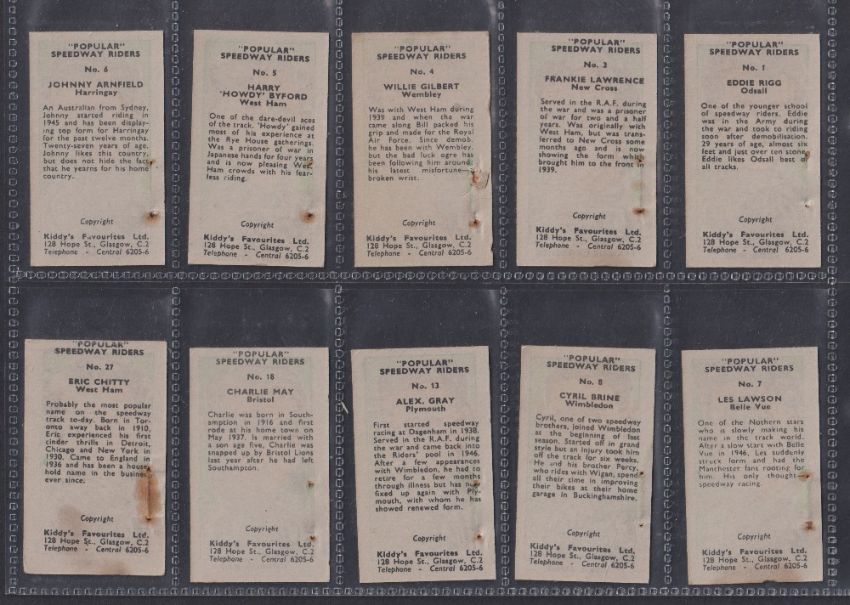 "POPULAR"
SPEEDWAY RIDERS
No. 6
JOHNNY ARNFIELD
Harringay
An Australian from Sydney,
Johnny started riding in
1945 and has been display-
ing top form for Harringay
for the past twelve months.
Twenty-seven years of age,
Johnny likes this country,
but does not hide the fact
that he yearns for his home
country.
Copyright
Kiddy's Favourites Ltd.
128 Hope St., Glasgow, C.2
Telephone - Central 6205-6
"POPULAR"
SPEEDWAY RIDERS
No. 5
HARRY
'HOWDY' BYFORD
West Ham
One of the dare-devil aces
of the track. 'Howdy' gained
most of his experience at
the Rye House gatherings.
Was a prisoner of war in
Japanese hands for four years
and is now pleasing West
Ham crowds with his fear-
less riding.
Copyright
Kiddy's Favourites Ltd.
128 Hope St., Glasgow, C.2
Telephone - Central 6205-6
"POPULAR"
SPEEDWAY RIDERS
No. 4
WILLIE GILBERT
Wembley
Was with West Ham during
1939 and when the war
came along Bill packed his
grip and made for the Royal
Air Force. Since demob.
he has been with Wembley,
but the bad luck ogre has
been following him around
his latest misfortune—
broken wrist.
Copyright
Kiddy's Favourites Ltd.
128 Hope St., Glasgow, C.2
Telephone - Central 6205-6
"POPULAR"
SPEEDWAY RIDERS
No. 3
FRANKIE LAWRENCE
New Cross
Served in the R.A.F. during
the war and was a prisoner
of war for two and a half
years. Was originally with
West Ham, but was trans-
ferred to New Cross some
months ago and is now
showing the form which
brought him to the front in
1939.
Copyright
Kiddy's Favourites Ltd.
128 Hope St., Glasgow, C.2
Telephone - Central 6205-6
"POPULAR"
SPEEDWAY RIDERS
No. 1
EDDIE RIGG
Odsall
One of the younger school
of speedway riders. Eddie
was in the Army during
the war and took to riding
soon after demobilisation.
29 years of age, almost six
feet and just over ten stone,
Eddie likes Odsall best of
all tracks.
Copyright
Kiddy's Favourites Ltd.
128 Hope St., Glasgow, C.2
Telephone - Central 6205-6
"POPULAR"
SPEEDWAY RIDERS
No. 27
ERIC CHITTY
West Ham
Probably the most popular
name on the speedway
track to-day. Born in Tor-
onto away back in 1910,
Eric experienced his first
cinder thrills in Detroit,
Chicago and New York in
1930. Came to England in
1936 and has been a house-
hold name in the business
ever since.
Copyright
Kiddy's Favourites Ltd.
128 Hope St., Glasgow, C.2
Telephone - Central 6205-6
"POPULAR"
SPEEDWAY RIDERS
No. 18
CHARLIE MAY
Bristol
Charlie was born in South-
ampton in 1916 and first
rode at his home town on
May 1937. Is married with
a son age five, Charlie was
snapped up by Bristol Lions
last year after he had left
Southampton.
Copyright
Kiddy's Favourites Ltd.
128 Hope St., Glasgow, C.2
Telephone - Central 6205-6
"POPULAR"
SPEEDWAY RIDERS
No. 13
ALEX. GRAY
Plymouth
First started speedway
racing at Dagenham in 1938.
Served in the R.A.F. during
the war and came back into
the Riders' pool in 1946.
After a few appearances
with Wimbledon, he had to
retire for a few months
through illness but has now
fixed up again with Ply-
mouth, with whom he has
showed renewed form.
Copyright
Kiddy's Favourites Ltd.
128 Hope St., Glasgow, C.2
Telephone - Central 6205-6
"POPULAR"
SPEEDWAY RIDERS
No. 8
CYRIL BRINE
Wimbledon
Cyril, one of two speedway
brothers, joined Wimbledon
at the beginning of last
season. Started off in grand
style but an injury took him
off the track for six weeks.
He and his brother Percy,
who rides with Wigan, spend
all their time in improving
their bikes at their home
garage in Buckinghamshire.
Copyright
Kiddy's Favourites Ltd.
128 Hope St., Glasgow, C.2
Telephone - Central 6205-6
"POPULAR"
SPEEDWAY RIDERS
No. 7
LES LAWSON
Belle Vue
One of the Nothern stars
who is slowly making his
name in the track world.
After a slow start with Belle
Vue in 1946, Les suddenly
struck form and had the
Manchester fans rooting for
him. His only thought—
speedway racing.
Copyright
Kiddy's Favourites Ltd.
128 Hope St., Glasgow, C.2
Telephone - Central 6205-6